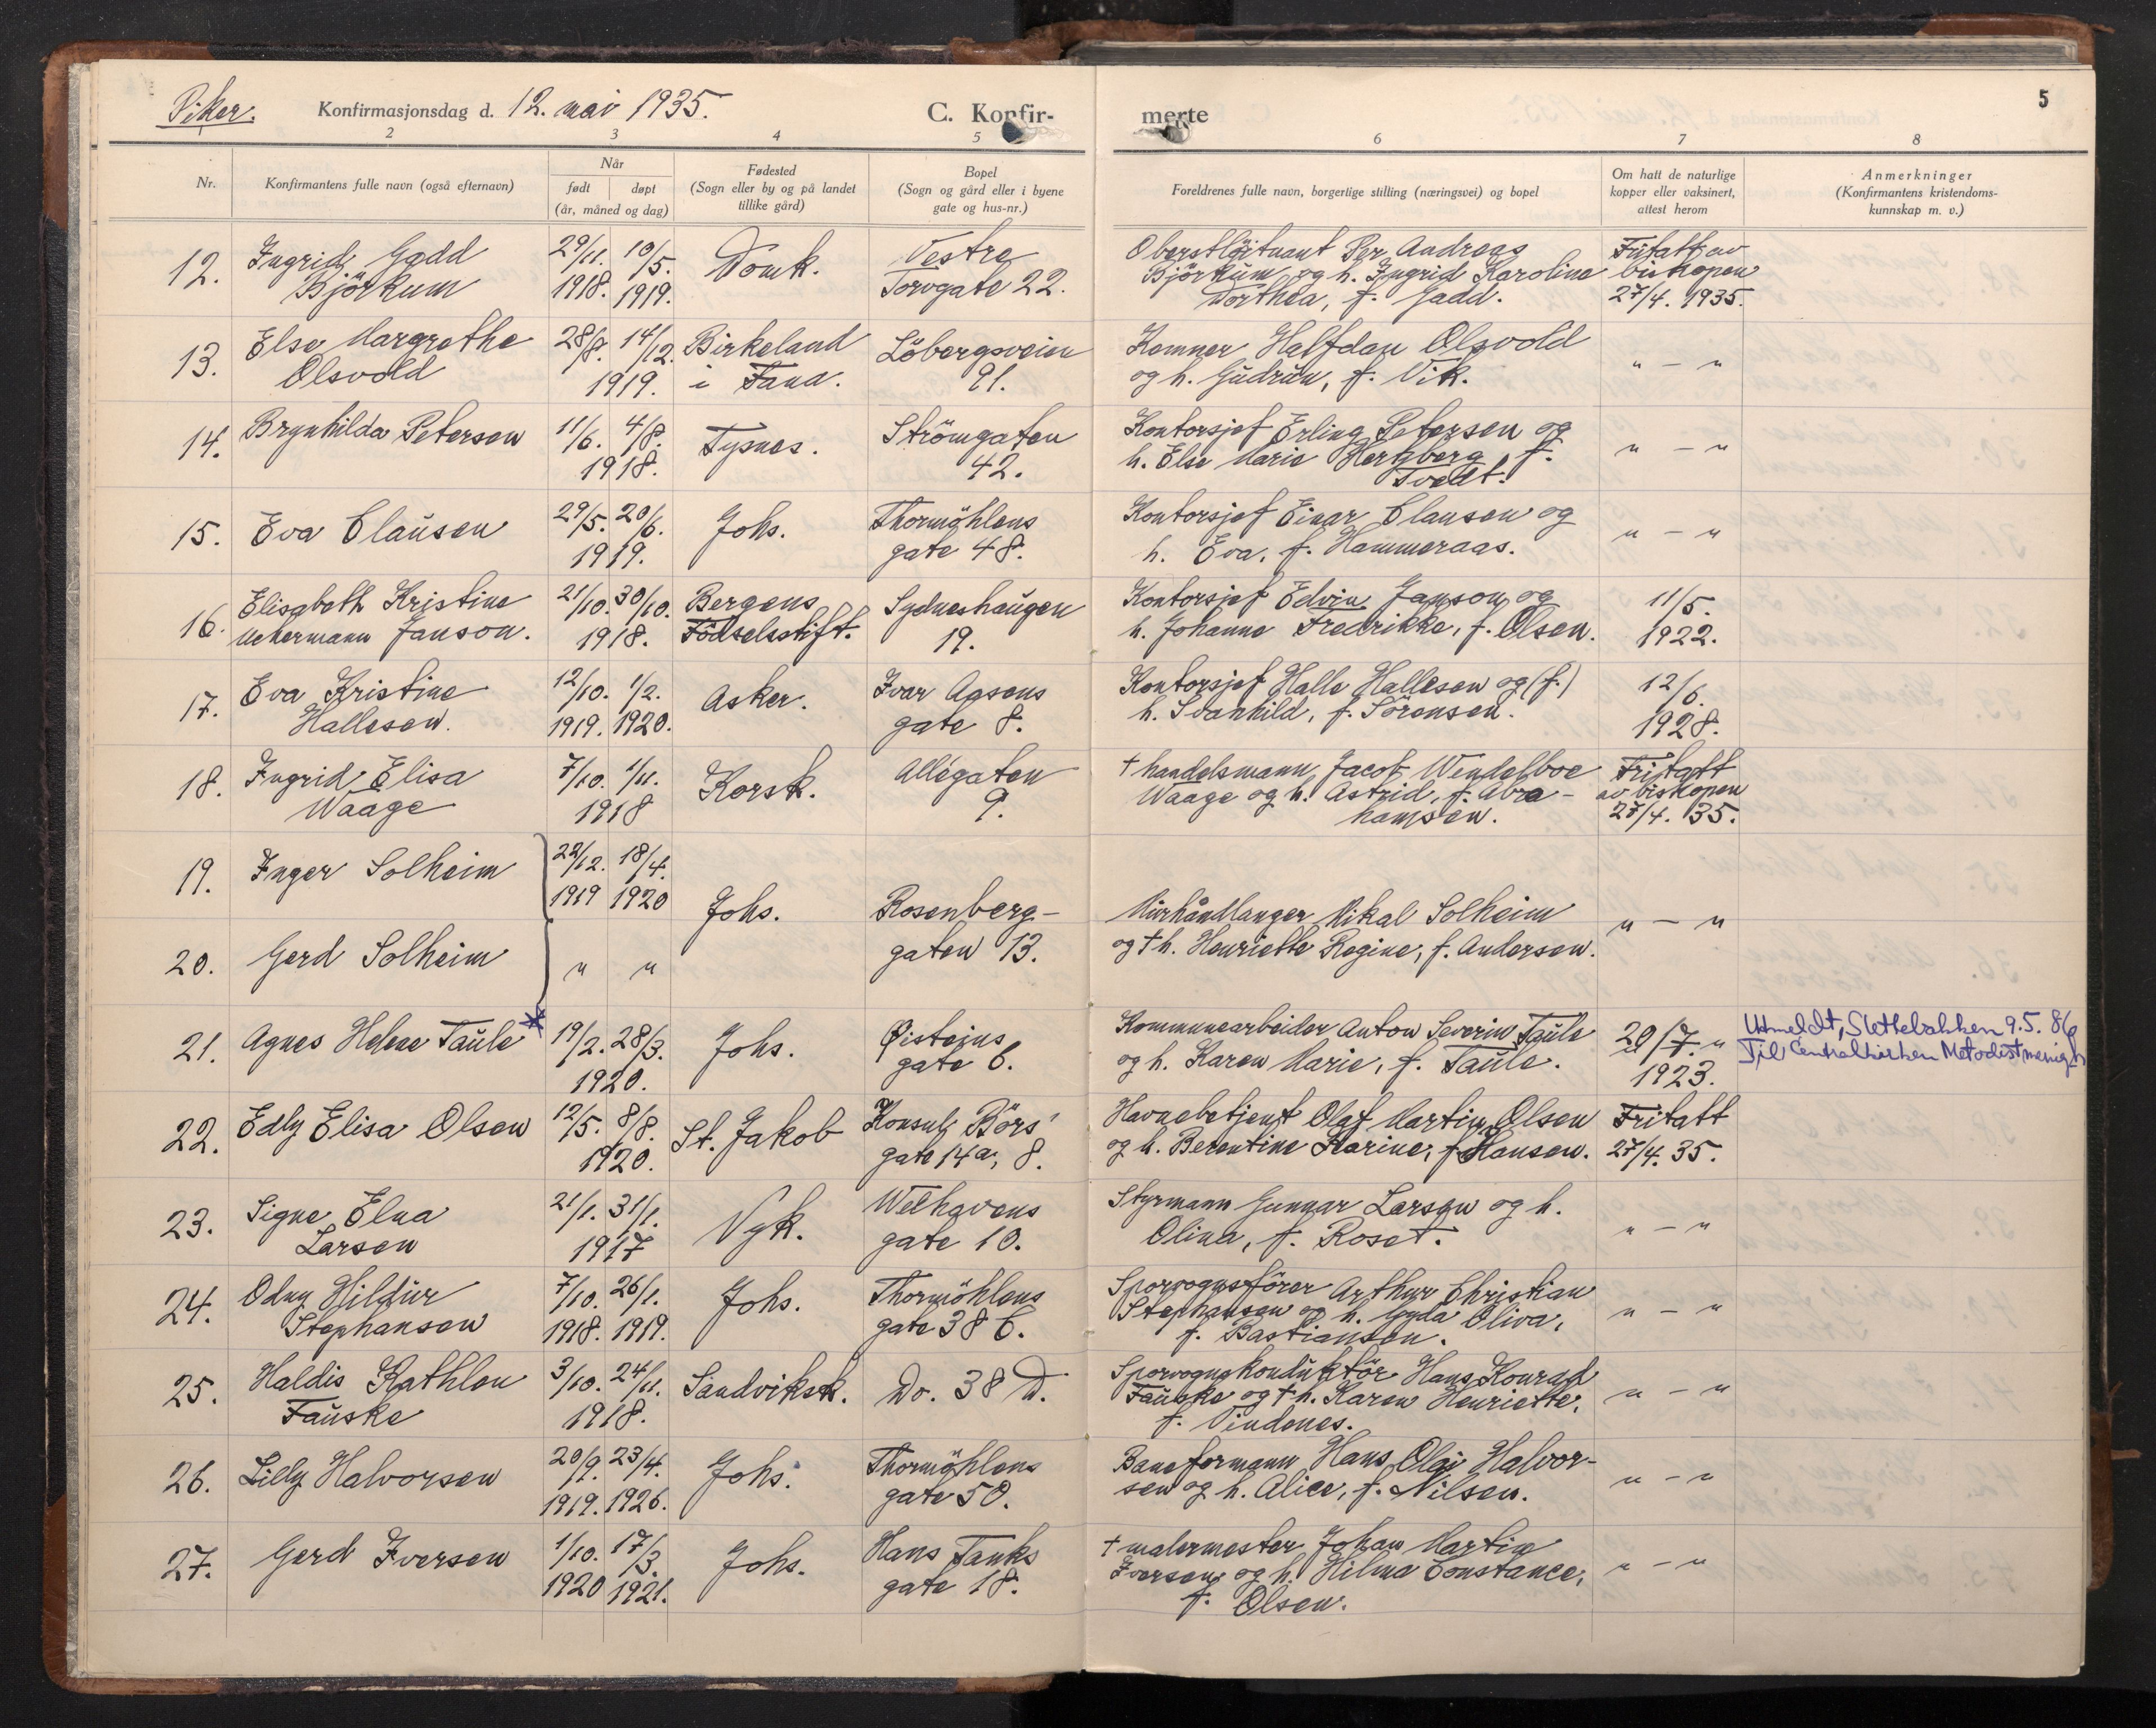 Piker. Konfirmasjonsdag d. 12. mai 1935. C. Konfir-
merte
5
2 3 4 5 6 7 8
Nr. Konfirmantens fulle navn (også efternavn)
Når
født døpt
(år, måned og dag)
Fødested
(Sogn eller by og på landet
tillike gård)
Bopel
(Sogn og gård eller i byene
gate og hus-nr.)
Foreldrenes fulle navn, borgerlige stilling (næringsvei) og bopel
Om hatt de naturlige
kopper eller vaksinert,
attest herom
Anmerkninger
(Konfirmantens kristendoms-
kunnskap m. v.)
12. Ingrid Gadd
Björkum
29/11. 10/5.
1918. 1919.
Domk.
Vestre
Torvgate 22.
Oberstlöitnant Per Andreas
Björkum og h. Ingrid Karoline
Dorthea, f. Gadd.
Fritatt av
biskopen
27/4. 1935.
13. Else Margrethe
Olsvold
28/8. 14/12.
1919.
Birkeland
i Fana.
Löbergsveien
91.
Kemner Halfdan Olsvold
og h. Gudrun, f. Vik.
" – "
14. Brynhilda Petersen
11/6. 4/8.
1918.
Tysnes.
Strömgaten
42.
Kontorsjef Erling Petersen og
h. Else Marie Hertzberg f.
Tvedt.
" – "
15. Eva Clausen
29/5. 20/6.
1919.
Johs.
Thormöhlens
gate 48.
Kontorsjef Einar Clausen og
h. Eva, f. Hammeraas.
" – "
16. Elisabeth Kristine
Uckermann Janson.
21/10. 30/10.
1918.
Bergens
Födselsstift.
Sydneshaugen
19.
Kontorsjef Edvin Janson og
h. Johanne Fredrikke, f. Olsen.
11/5.
1922.
17. Eva Kristine
Hallesen.
12/10. 1/2.
1919. 1920.
Asker.
Ivar Aasens
gate 8.
Kontorsjef Halle Hallesen og (f.)
h. Svanhild, f. Sörensen.
12/6.
1928.
18. Ingrid Elisa
Waage
7/10. 1/11.
1918
Korsk.
Allégaten
9.
† handelsmann Jacob Wendelboe
Waage og h. Astrid, f. Abra-
hamsen.
Fritatt
av biskopen
27/4. 135.
19. Inger Solheim
22/12. 18/4.
1919 1920
Johs.
Rosenberg-
gaten 13.
Murhåndlanger Mikal Solheim
og † h. Henriette Regine, f. Andersen.
" – "
20. Gerd Solheim
" "
21. Agnes Helene Taule *
19/2. 28/3.
1920.
Johs.
Øisteins
gate 6.
Kommunearbeider Anton Severin Taule
og h. Karen Marie, f. Taule.
20/7.
1923.
Utmeldt, Slettebakken 9.5. 86
Til Centralkirken Metodistmenigh
22. Edly Elisa Olsen
12/5. 8/8.
1920.
St. Jakob
Konsul Börs'
gate 14a, 8.
Havnebetjent Olaf Martin Olsen
og h. Berentine Karine, f. Hansen.
Fritatt
27/4. 35.
23. Signe Elna
Larsen
21/1. 31/1.
1917
Nyk.
Welhavens
gate 10.
Styrmann Gunnar Larsen og h.
Olina, f. Roset.
" – "
24. Odny Hildur
Stephansen
7/10. 26/1.
1918. 1919.
Johs.
Thormöhlens
gate 38 C.
Sporvognsförer Arthur Christian
Stephansen og h. Gyda Oliva,
f. Bastiansen.
" – "
25. Haldis Kathlen
Fauske
3/10. 24/11.
1918.
Sandviksk.
Do. 38 D.
Sporvognskonduktör Hans Konrad
Fauske og † h. Karen Henriette,
f. Vindenes.
" – "
26. Lilly Halvorsen
20/9. 23/4.
1919. 1926.
Johs.
Thormöhlens
gate 50.
Baneformann Hans Olai Halvor-
sen og h. Alice, f. Nilsen.
" – "
27. Gerd Iversen
1/10. 17/3.
1920 1921.
Johs.
Hans Tanks
gate 18.
† malermester Johan Martin
Iversen og h. Hilma Constance,
f. Olsen.
" – "